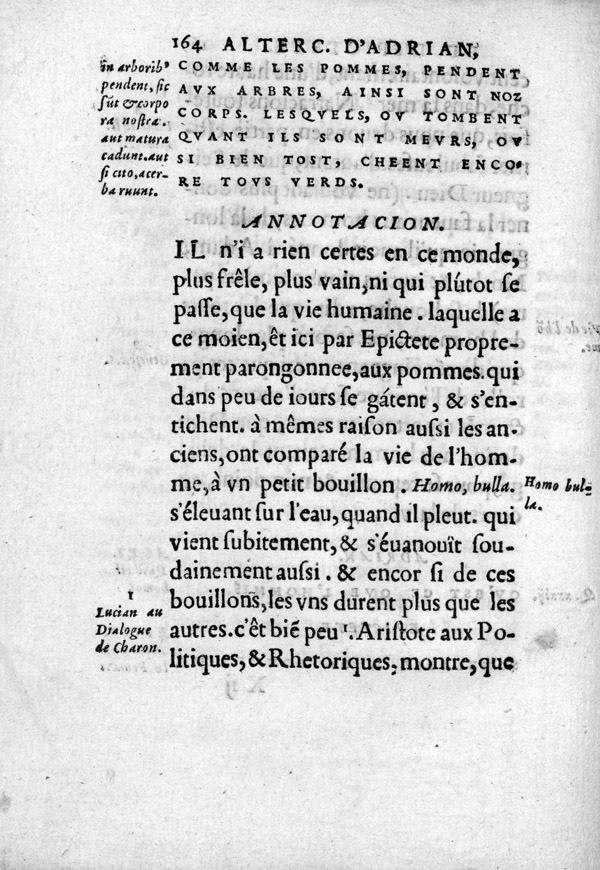 164 ALTERC. D'ADRIAN,
in arborib⁹
pendent, sic
sũt & corpo
ra nostra.
aut matura
cadunt. aut
si cito, acer-
ba ruunt.
COMME LES POMMES, PENDENT
AVX ARBRES, AINSI SONT NOZ
CORPS. LESQVELS, OV TOMBENT
QVANT ILS SONT MEVRS, OV
SI BIEN TOST, CHEENT ENCO-
RE TOVS VERDS.
ANNOTACION.
IL n'i a rien certes en ce monde,
plus frêle, plus vain, ni qui plútot se
passe, que la vie humaine. laquelle a
ce moien, êt ici par Epictete propre-
ment parongonnee, aux pommes. qui
dans peu de iours se gátent, & s'en-
tichent. à mêmes raison aussi les an-
ciens, ont comparé la vie de l'hom-
me, à vn petit bouillon. Homo, bulla.
Homo bul-
la.
s'éleuant sur l'eau, quand il pleut. qui
vient subitement, & s'éuanouït sou-
dainement aussi. & encor si de ces
bouillons, les vns durent plus que les
autres. c'êt biẽ peu ¹. Aristote aux Po-
litiques, & Rhetoriques, montre, que
1
Lucian au
Dialogue
de Charon.